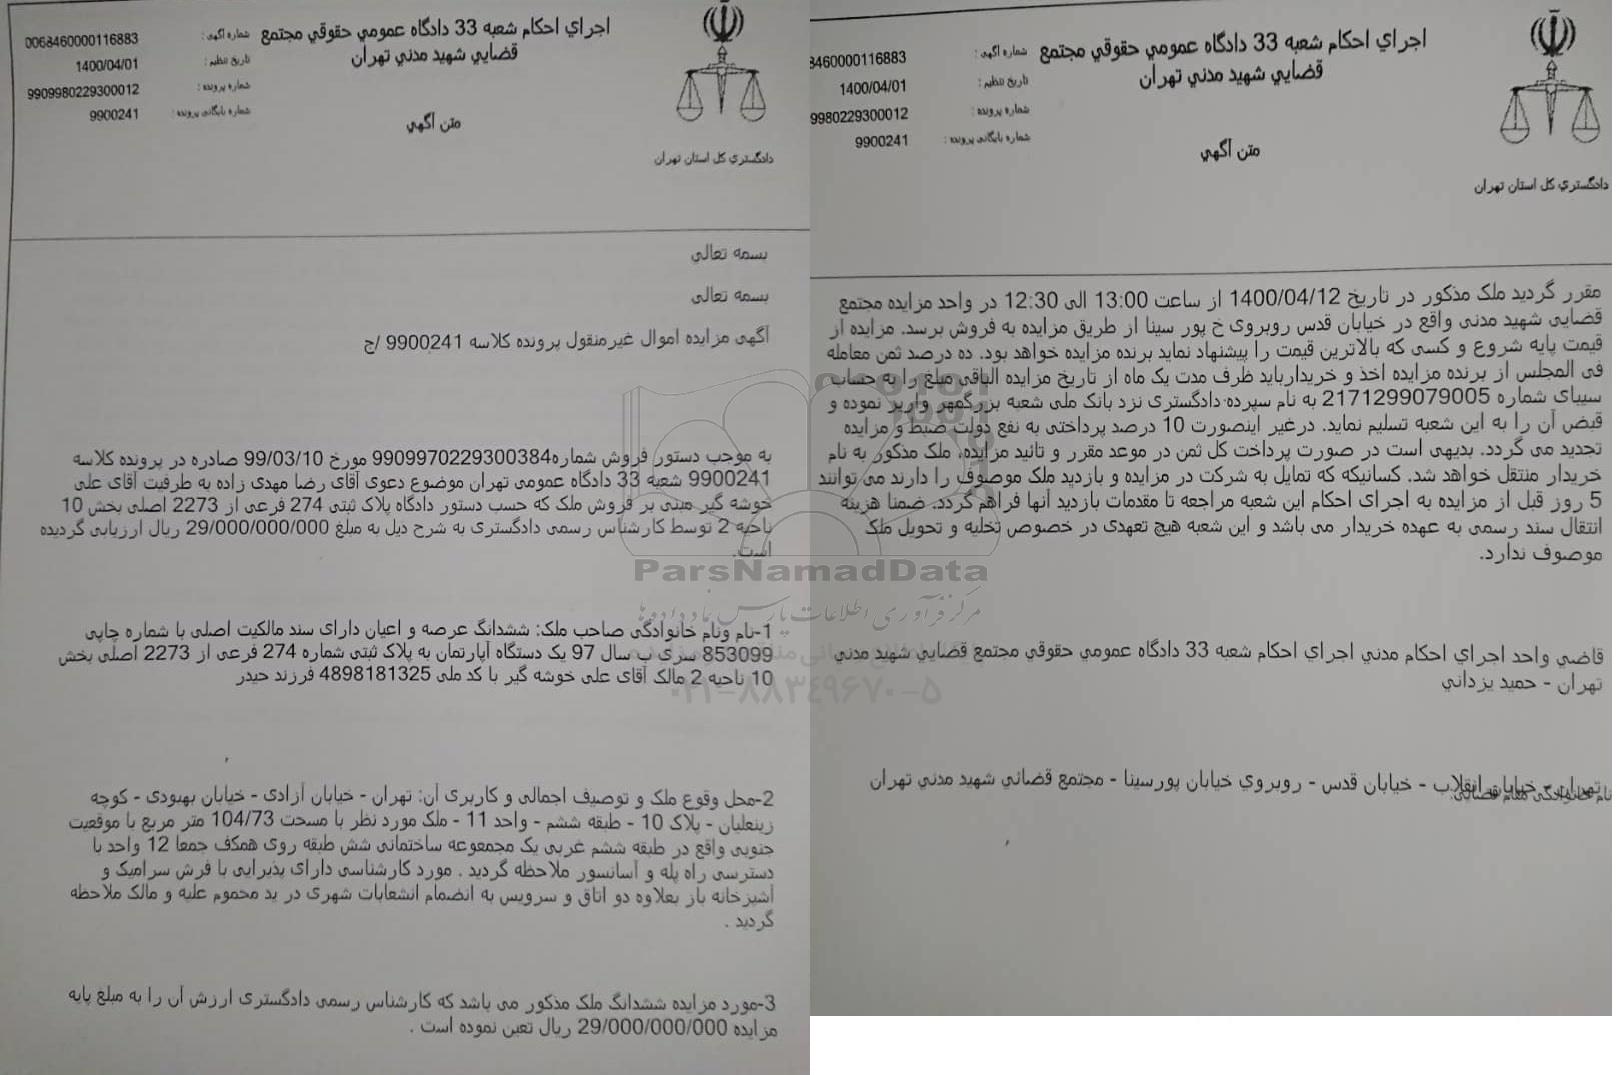 اجراي احكام شعبه 33 دادگاه عمومي حقوقي مجتمع
قضايي شهيد مدني تهران
شماره آگهی :
0068460000116883
تاریخ تنظیم :
1400/04/01
شماره پرونده :
9909980229300012
شماره بایگانی پرونده :
9900241
متن آگهي
دادگستري كل استان تهران
بسمه تعالي
بسمه تعالی
آگهی مزایده اموال غیرمنقول پرونده کلاسه 9900241 /ج
به موجب دستور فروش شماره9909970229300384 مورخ 99/03/10 صادره در پرونده کلاسه
9900241 شعبه 33 دادگاه عمومی تهران موضوع دعوی آقای رضا مهدی زاده به طرفیت آقای علی
خوشه گیر مبنی بر فروش ملک که حسب دستور دادگاه پلاک ثبتی 274 فرعی از 2273 اصلی بخش 10
ناحیه 2 توسط کارشناس رسمی دادگستری به شرح ذیل به مبلغ 29/000/000/000 ریال ارزیابی گردیده
است.
1-نام ونام خانوادگی صاحب ملک: ششدانگ عرصه و اعیان دارای سند مالکیت اصلی با شماره چاپی
853099 سری ب سال 97 یک دستگاه آپارتمان به پلاک ثبتی شماره 274 فرعی از 2273 اصلی بخش
10 ناحیه 2 مالک آقای علی خوشه گیر با کد ملی 4898181325 فرزند حیدر
2-محل وقوع ملک و توصیف اجمالی و کاربری آن: تهران - خیابان آزادی - خیابان بهبودی - کوچه
زینعلیان - پلاک 10 - طبقه ششم - واحد 11 - ملک مورد نظر با مسحت 104/73 متر مربع با موقعیت
جنوبی واقع در طبقه ششم غربی یک مجمعوعه ساختمانی شش طبقه روی همکف جمعا 12 واحد با
دسترسی راه پله و آسانسور ملاحظه گردید . مورد کارشناسی دارای پذیرایی با فرش سرامیک و
آشپزخانه باز بعلاوه دو اتاق و سرویس به انضمام انشعابات شهری در ید محموم علیه و مالک ملاحظه
گردید .
3-مورد مزایده ششدانگ ملک مذکور می باشد که کارشناس رسمی دادگستری ارزش آن را به مبلغ پایه
مزایده 29/000/000/000 ریال تعین نموده است .
اجراي احكام شعبه 33 دادگاه عمومي حقوقي مجتمع
قضايي شهيد مدني تهران
شماره آگهی :
8460000116883
تاریخ تنظیم :
1400/04/01
شماره پرونده :
9980229300012
شماره بایگانی پرونده :
9900241
متن آگهي
دادگستري كل استان تهران
مقرر گردید ملک مذکور در تاریخ 1400/04/12 از ساعت 13:00 الی 12:30 در واحد مزایده مجتمع
قضایی شهید مدنی واقع در خیابان قدس روبروی خ پور سینا از طریق مزایده به فروش برسد. مزایده از
قیمت پایه شروع و کسی که بالاترین قیمت را پیشنهاد نماید برنده مزایده خواهد بود. ده درصد ثمن معامله
فی المجلس از برنده مزایده اخذ و خریدارباید ظرف مدت یک ماه از تاریخ مزایده الباقی مبلغ را به حساب
سیبای شماره 2171299079005 به نام سپرده دادگستری نزد بانک ملی شعبه بزرگمهر واریز نموده و
قبض آن را به این شعبه تسلیم نماید. درغیر اینصورت 10 درصد پرداختی به نفع دولت ضبط و مزایده
تجدید می گردد. بدیهی است در صورت پرداخت کل ثمن در موعد مقرر و تائید مزایده، ملک مذکور به نام
خریدار منتقل خواهد شد. کسانیکه که تمایل به شرکت در مزایده و بازدید ملک موصوف را دارند می توانند
5 روز قبل از مزایده به اجرای احکام این شعبه مراجعه تا مقدمات بازدید آنها فراهم گردد. ضمنا هزینه
انتقال سند رسمی به عهده خریدار می باشد و این شعبه هیچ تعهدی در خصوص تخلیه و تحویل ملک
موصوف ندارد.
قاضي واحد اجراي احكام مدني اجراي احكام شعبه 33 دادگاه عمومي حقوقي مجتمع قضايي شهيد مدني
تهران - حميد يزداني
تهران - خيابان انقلاب - خيابان قدس - روبروي خيابان پورسينا - مجتمع قضائي شهيد مدني تهران
ParsNamadData
مرکز فرآوری اطلاعات پارس نماد داده ها
۰۲۱-۸۸۳۴۹۶۷۰-۵